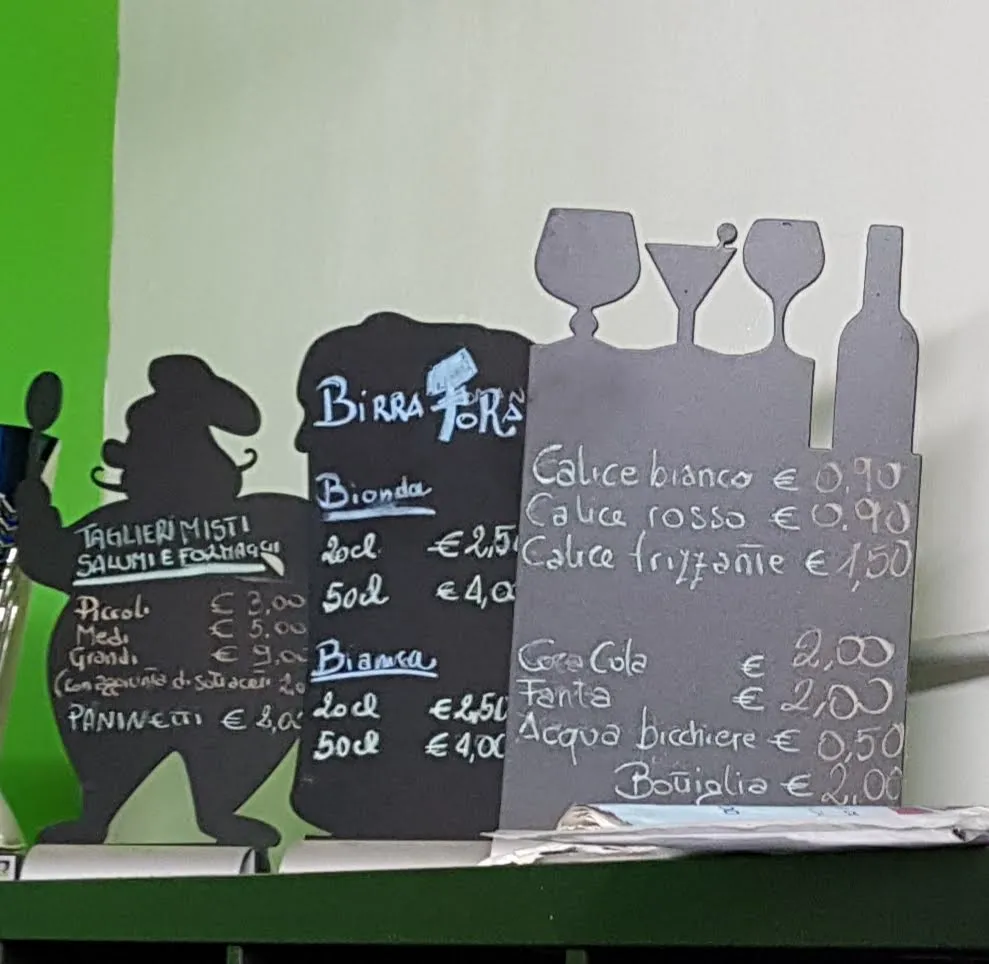 TAGLIERI MISTI
SALUMI E FORMAGGI
Piccoli € 3,00
Medi € 5,00
Grandi € 9,00
(con aggiunta di sottaceti 2,0
PANINETTI € 2,00
BIRRA
Bionda
20cl € 2,50
50cl € 4,00
Bianca
20cl € 2,50
50cl € 4,00
Calice bianco € 0,90
Calice rosso € 0,90
Calice frizzante € 1,50
Coca Cola € 2,00
Fanta € 2,00
Acqua bicchiere € 0,50
Bottiglia € 2,00